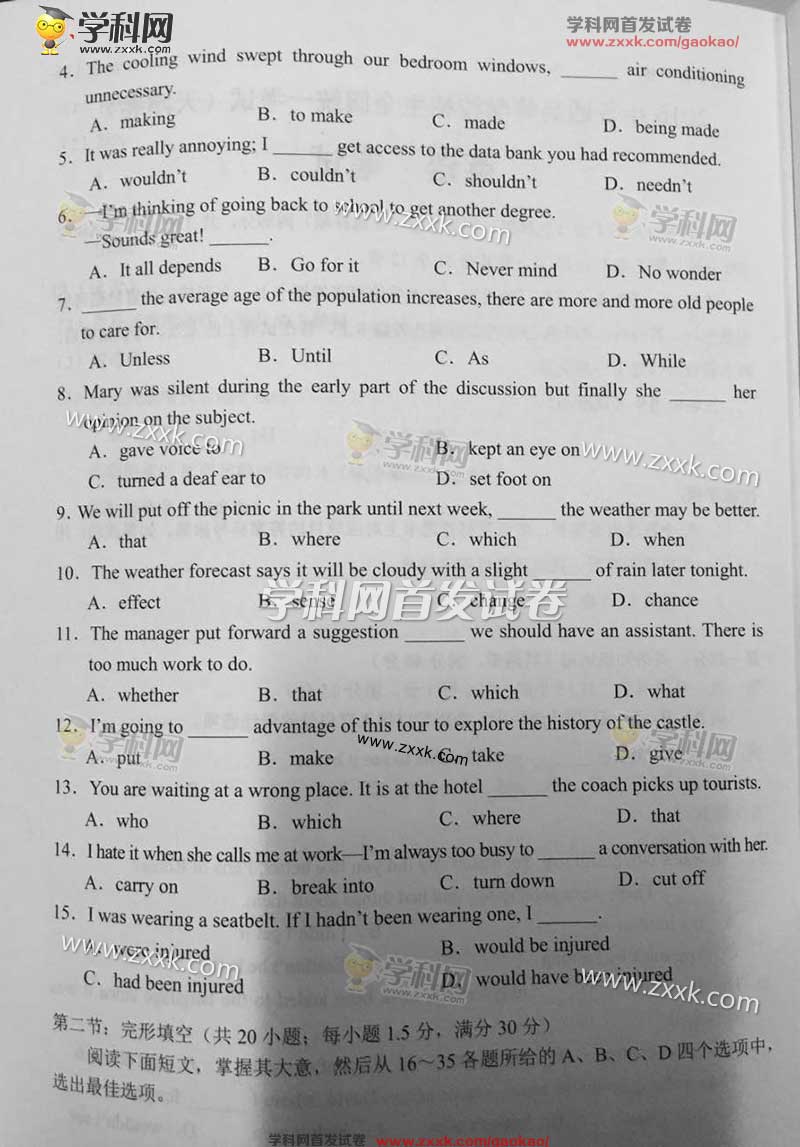 学科网
www.zxxk.com
学科网首发试卷
www.zxxk.com/gaokao/
4．The cooling wind swept through our bedroom windows, ______ air conditioning
unnecessary.
A．making B．to make C．made D．being made
5．It was really annoying; I ______ get access to the data bank you had recommended.
A．wouldn't B．couldn't C．shouldn't D．needn't
6．—I'm thinking of going back to school to get another degree.
—Sounds great! ______.
A．It all depends B．Go for it C．Never mind D．No wonder
7．______ the average age of the population increases, there are more and more old people
to care for.
A．Unless B．Until C．As D．While
8．Mary was silent during the early part of the discussion but finally she ______ her
opinion on the subject.
A．gave voice to B．kept an eye on
C．turned a deaf ear to D．set foot on
9．We will put off the picnic in the park until next week, ______ the weather may be better.
A．that B．where C．which D．when
10．The weather forecast says it will be cloudy with a slight ______ of rain later tonight.
A．effect B．sense C．change D．chance
学科网首发试卷
11．The manager put forward a suggestion ______ we should have an assistant. There is
too much work to do.
A．whether B．that C．which D．what
12．I'm going to ______ advantage of this tour to explore the history of the castle.
A．put B．make C．take D．give
13．You are waiting at a wrong place. It is at the hotel ______ the coach picks up tourists.
A．who B．which C．where D．that
14．I hate it when she calls me at work—I'm always too busy to ______ a conversation with her.
A．carry on B．break into C．turn down D．cut off
15．I was wearing a seatbelt. If I hadn't been wearing one, I ______.
A．were injured B．would be injured
C．had been injured D．would have been injured
第二节：完形填空（共 20 小题；每小题 1.5 分，满分 30 分）
阅读下面短文，掌握其大意，然后从 16～35 各题所给的 A、B、C、D 四个选项中，
选出最佳选项。
学科网首发试卷 www.zxxk.com/gaokao/